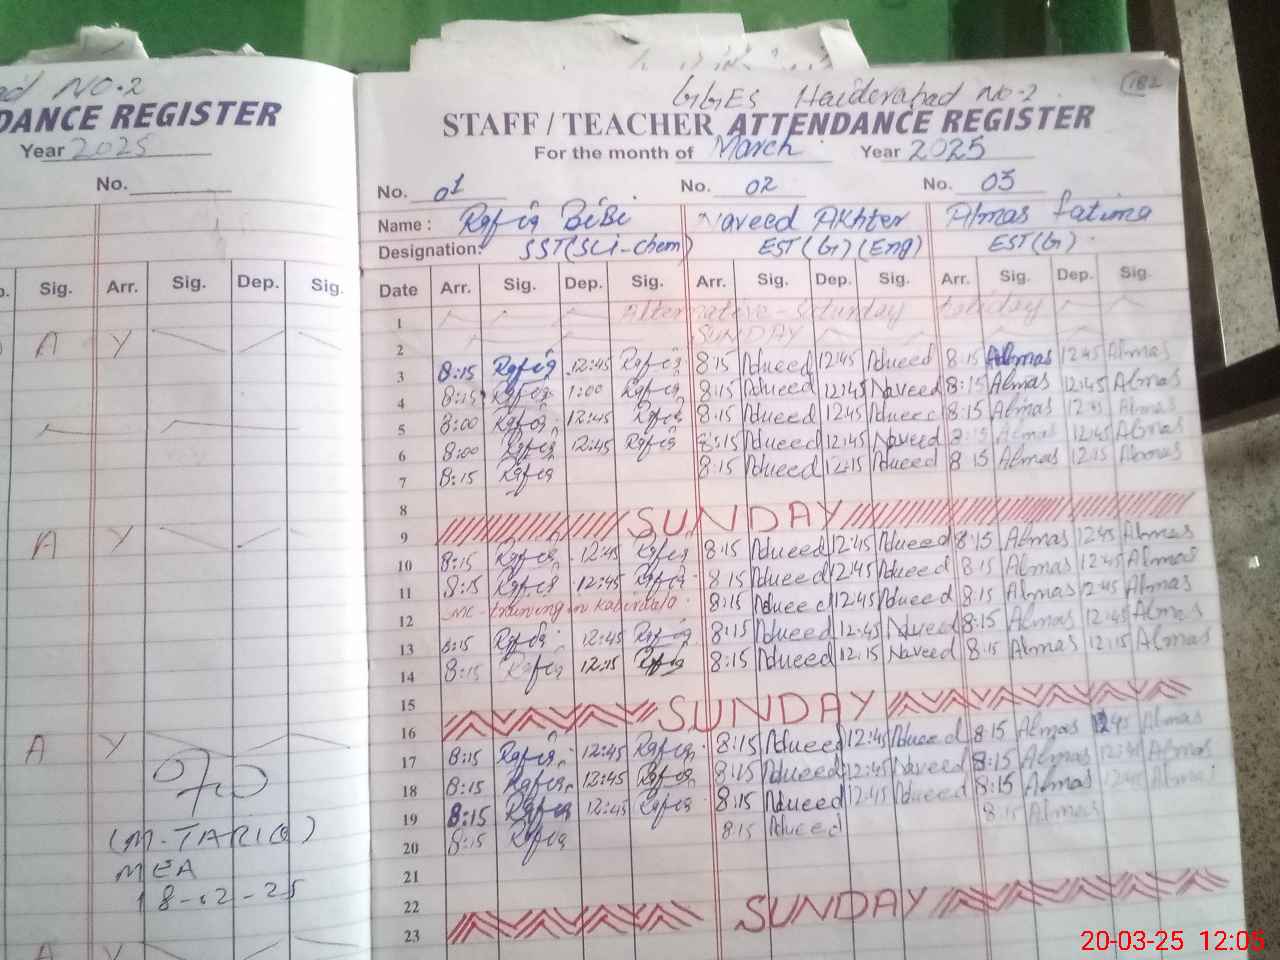 NO.2
DANCE REGISTER
Year 2025
No.
Sig. Arr. Sig. Dep. Sig.
A Y
A Y
A Y
(M. TARIQ)
MEA
18-02-25
A Y
182
GGES Haiderabad NO-2
STAFF / TEACHER ATTENDANCE REGISTER
For the month of March Year 2025
No. 01 No. 02 No. 03
Name : Rafiq BiBi Naveed Akhter Almas fatima
Designation: SST(SCi-chem) EST(G)(Eng) EST(G)
Date Arr. Sig. Dep. Sig. Arr. Sig. Dep. Sig. Arr. Sig. Dep. Sig.
1 Alternative - Saturday holiday
2 SUNDAY
3 8:15 Rafiq 12:45 Rafiq 8:15 Naveed 12:45 Naveed 8:15 Almas 12:45 Almas
4 8:15 Rafiq 1:00 Rafiq 8:15 Naveed 12:45 Naveed 8:15 Almas 12:45 Almas
5 8:00 Rafiq 12:45 Rafiq 8:15 Naveed 12:45 Naveed 8:15 Almas 12:45 Almas
6 8:00 Rafiq 12:45 Rafiq 8:15 Naveed 12:45 Naveed 8:15 Almas 12:45 Almas
7 8:15 Rafiq 8:15 Naveed 12:15 Naveed 8:15 Almas 12:15 Almas
8
9 SUNDAY
10 8:15 Rafiq 12:45 Rafiq 8:15 Naveed 12:45 Naveed 8:15 Almas 12:45 Almas
11 8:15 Rafiq 12:45 Rafiq 8:15 Naveed 12:45 Naveed 8:15 Almas 12:45 Almas
12 training in 8:15 Naveed 12:45 Naveed 8:15 Almas 12:45 Almas
13 8:15 Rafiq 12:45 Rafiq 8:15 Naveed 12:45 Naveed 8:15 Almas 12:45 Almas
14 8:15 Rafiq 12:15 Rafiq 8:15 Naveed 12:15 Naveed 8:15 Almas 12:15 Almas
15
16 SUNDAY
17 8:15 Rafiq 12:45 Rafiq 8:15 Naveed 12:45 Naveed 8:15 Almas 12:45 Almas
18 8:15 Rafiq 12:45 Rafiq 8:15 Naveed 12:45 Naveed 8:15 Almas 12:45 Almas
19 8:15 Rafiq 12:45 Rafiq 8:15 Naveed 12:45 Naveed 8:15 Almas 12:45 Almas
20 8:15 Rafiq 8:15 Naveed 8:15 Almas
21
22
23 SUNDAY
20-03-25 12:05